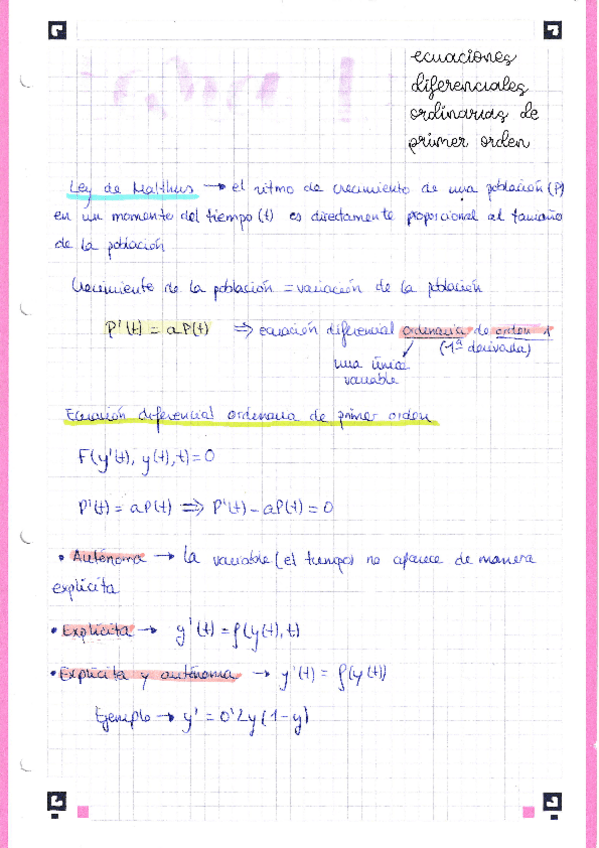 ecuaciones
diferenciales
ordinarias de
primer orden
Ley de Malthus → el ritmo de crecimiento de una población (P)
en un momento del tiempo (t) es directamente proporcional al tamaño
de la población
Crecimiento de la población = variación de la población
P'(t) = aP(t) ⇒ ecuación diferencial ordenaria de orden 1
(1ª derivada)
una única
variable
Ecuación diferencial ordenaria de primer orden
F(y'(t), y(t), t) = 0
P'(t) = aP(t) ⇒ P'(t) - aP(t) = 0
• Autónoma → la variable (el tiempo) no aparece de manera
explícita
• Explícita → y'(t) = f(y(t), t)
• Explícita y autónoma → y'(t) = f(y(t))
Ejemplo → y' = 0'2y(1-y)